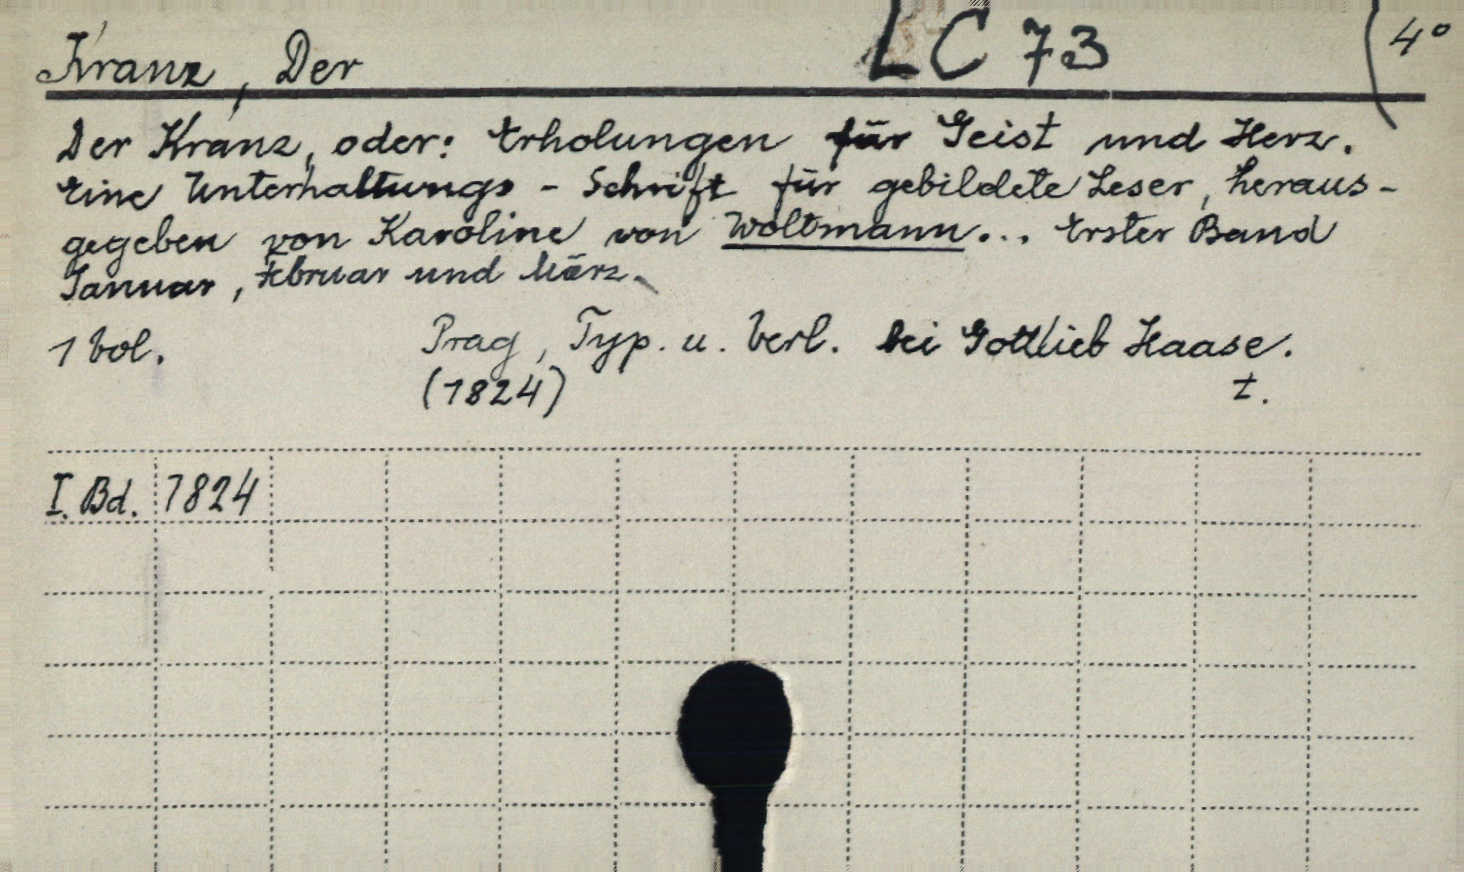 Kranz, Der LC 73 4°
Der Kranz, oder: Erholungen für Geist und Herz.
Eine Unterhaltungs - Schrift für gebildete Leser, heraus-
gegeben von Karoline von Woltmann... Erster Band
Januar, Februar und März.
1 vol. Prag, Typ. u. Verl. bei Gottlieb Haase.
(1824) t.
I. Bd. 1824